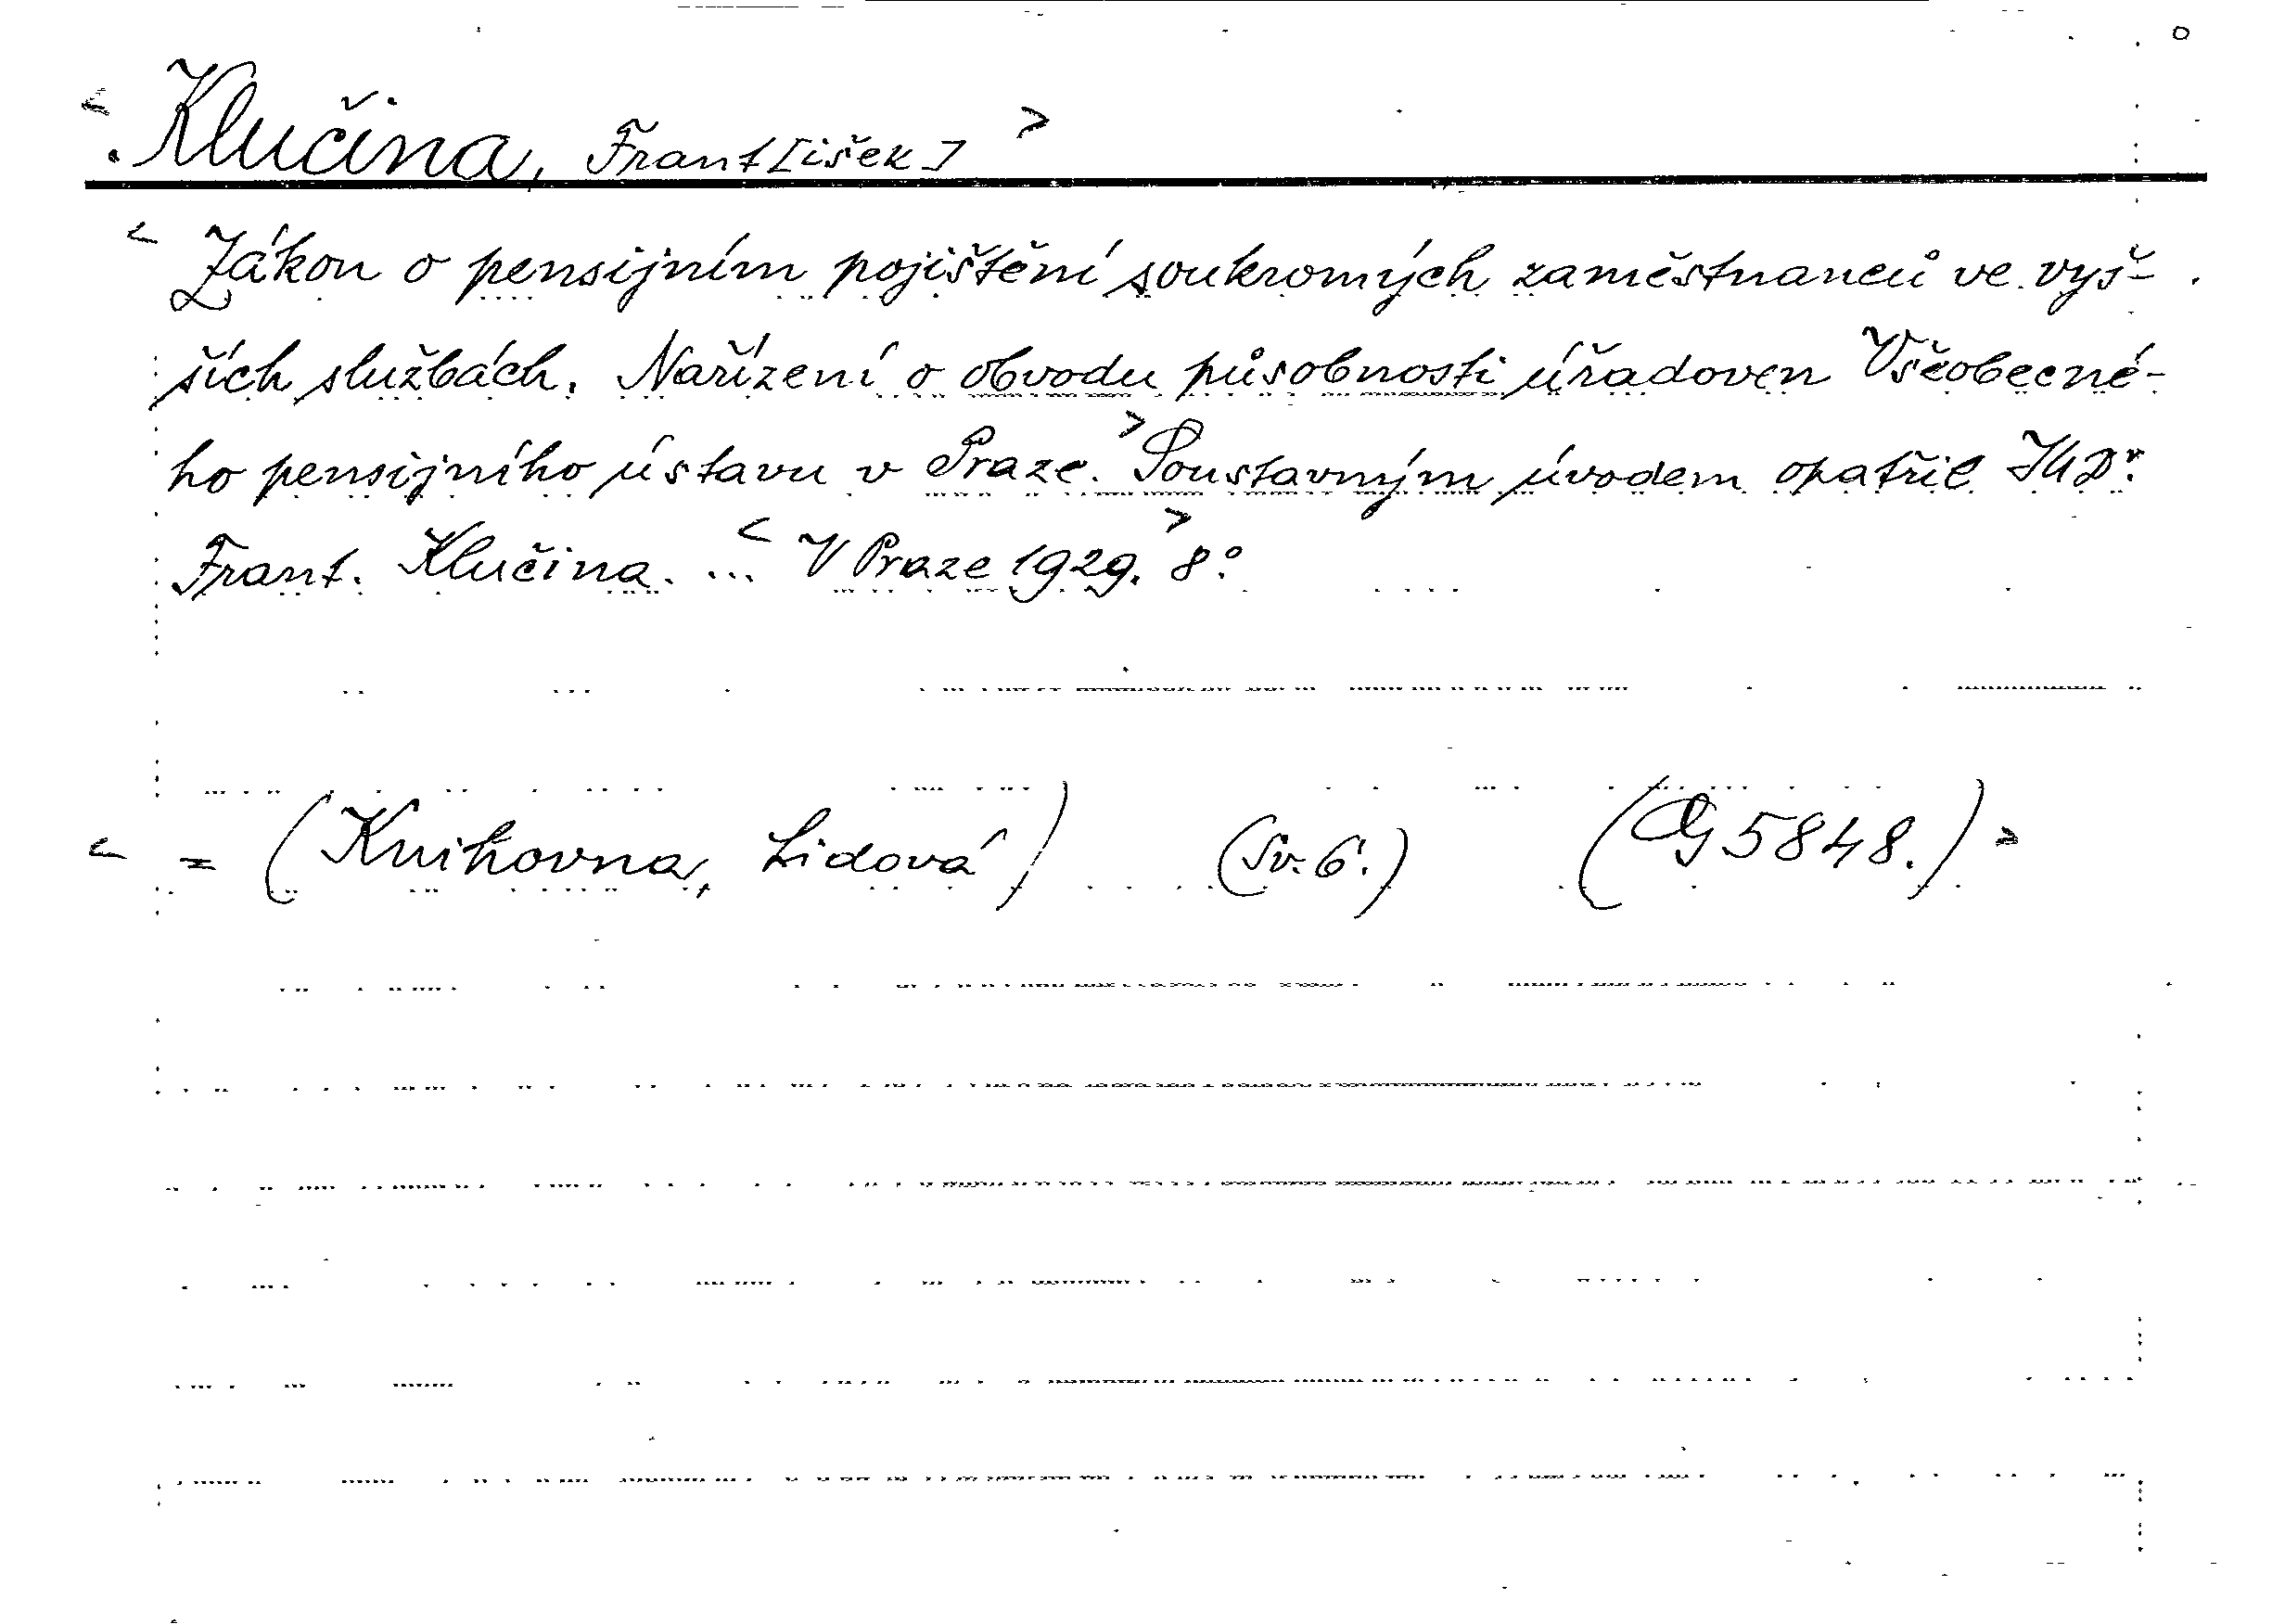 < Klučina, Frant[išek] >
< Zákon o pensijním pojištění soukromých zaměstnanců ve vyš-
ších službách. Nařízení o obvodu působnosti úřadoven Všeobecné-
ho pensijního ústavu v Praze. > Soustavným úvodem opatřil JUDr.
Frant. Klučina. ... < V Praze 1929. > 8°.
< = (Knihovna, Lidová) (Sv. 6.) (Og 5848.) >